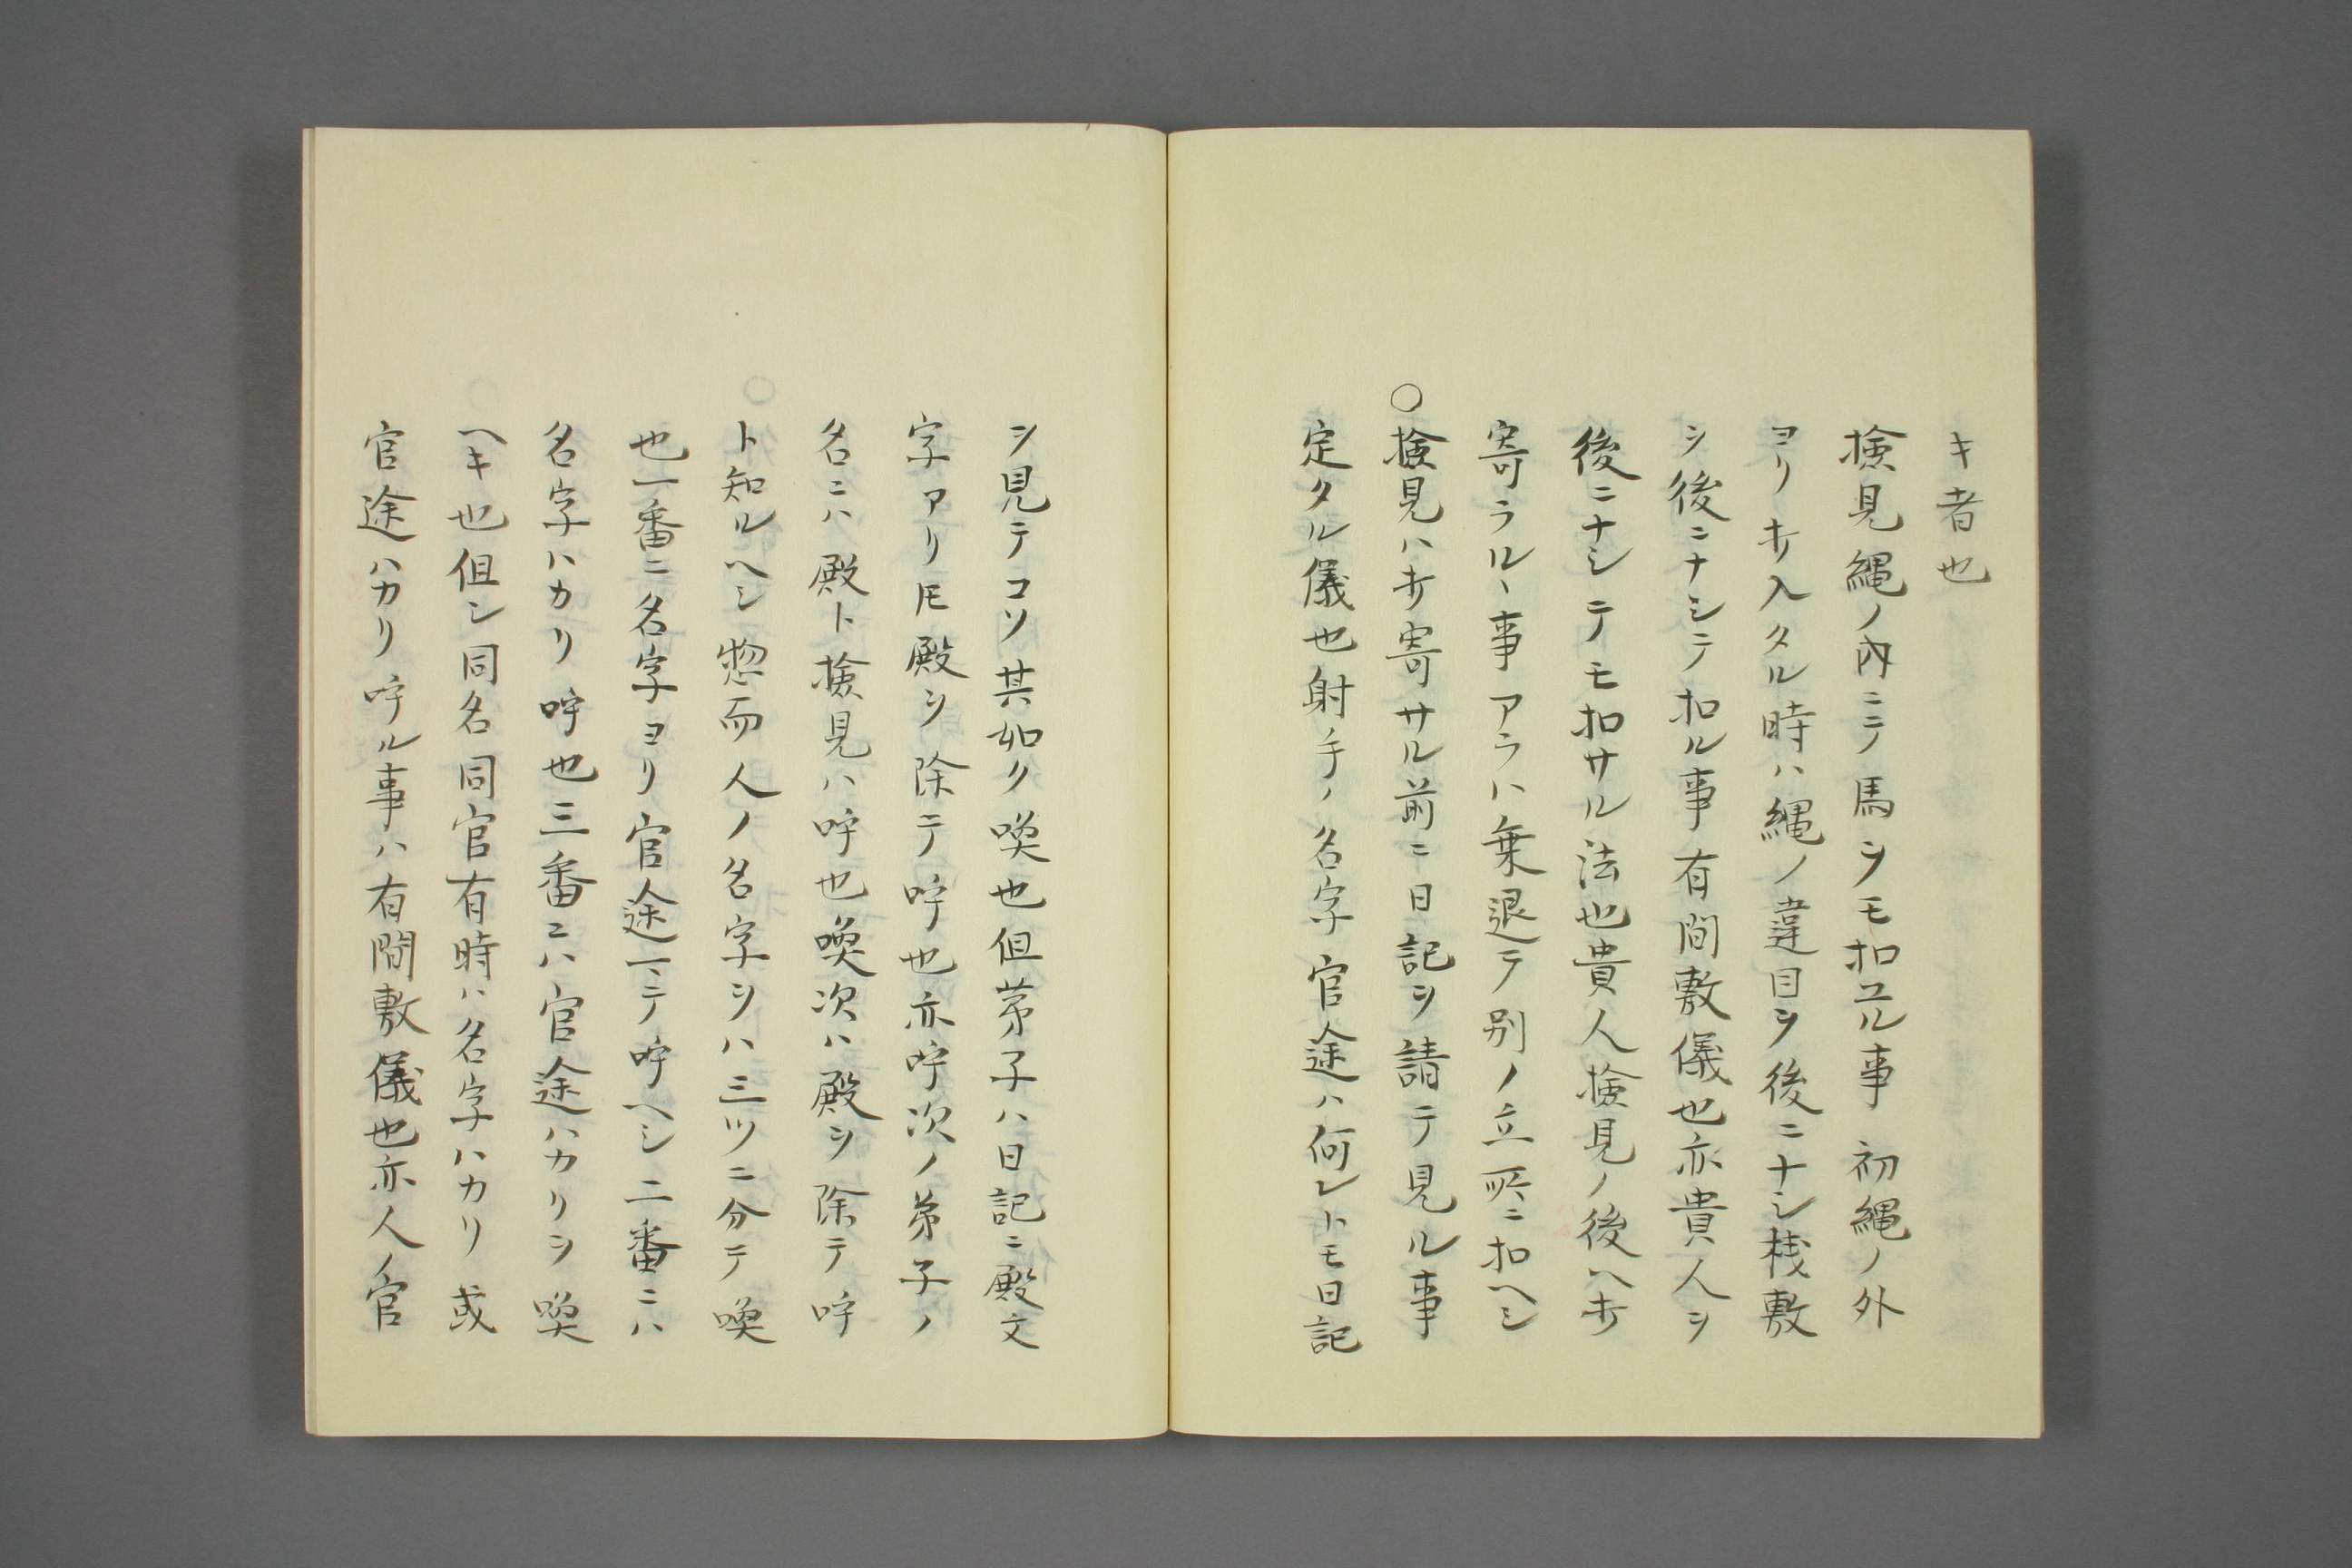 キ者也
撿見縄ノ内ニテ馬ヲモ扣ユル事初縄ノ外
ヨリ打入タル時ハ縄ノ違目ヲ後ニナシ桟敷
ヲ後ニナシテ扣ル事有間敷儀也亦貴人ヲ
後ニナシテモ扣サル法也貴人撿見ノ後ヘ打
寄ラルヽ事アラハ乗退テ別ノ立所ニ扣ヘシ
○撿見ハ打寄サル前ニ日記ヲ請テ見ル事
定タル儀也射手ノ名字官途ハ何レトモ日記
ヲ見テコソ其如ク喚也但茅子ハ日記ニ殿文
字アリ𪜈殿ヲ除テ呼也亦呼次ノ弟子ノ
名ニハ殿ト撿見ハ呼也喚次ハ殿ヲ除テ呼
ト知ルヘシ惣而人ノ名字ヲハ三ツニ分テ喚
也一番ニ名字ヨリ官途マテ呼ヘシ二番ニハ
名字ハカリ呼也三番ニハ官途ハカリヲ喚
ヘキ也但シ同名同官有時ハ名字ハカリ或
官途ハカリ呼ル事ハ有間敷儀也亦人ノ官